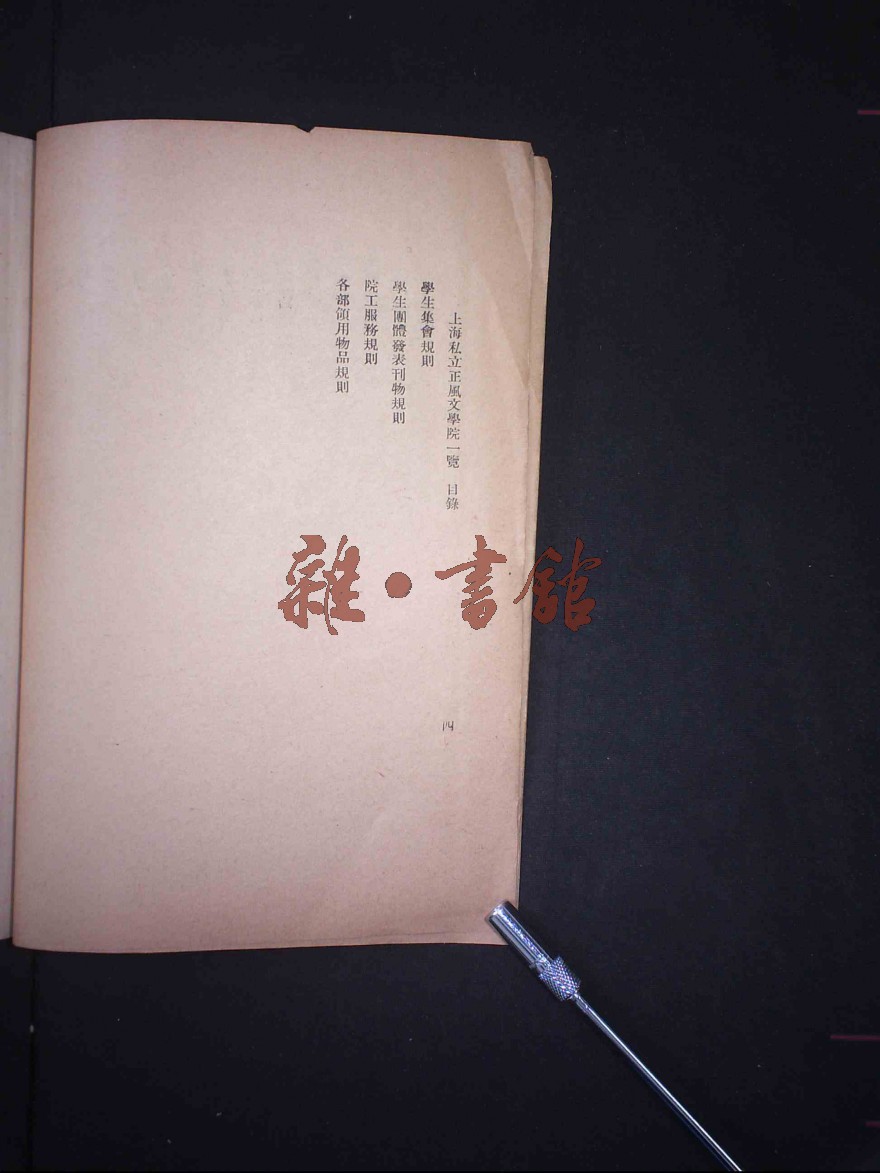 上海私立正風文學院一覽　目錄
四
學生集會規則
學生團體發表刊物規則
院工服務規則
各部領用物品規則
雜·書館